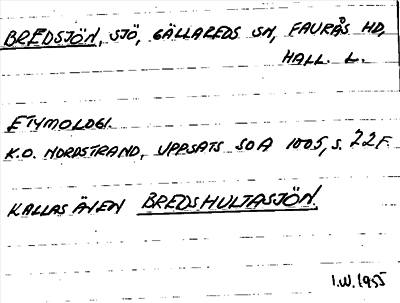 BREDSJÖN, SJÖ, GÄLLAREDS SN, FAURÅS HD,
HALL. L.
ETYMOLOGI.
K.O. NORDSTRAND, UPPSATS SOA 1005, S. 22F.
KALLAS ÄVEN BREDSHULTASJÖN.
I.W. 1955